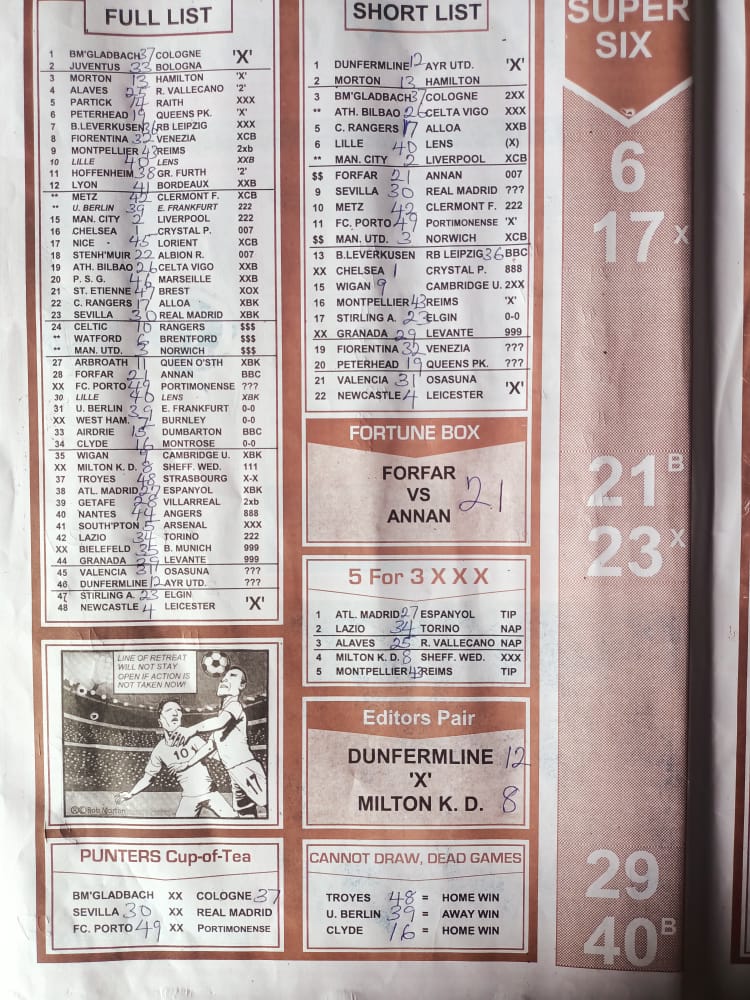 FULL LIST
1 BM'GLADBACH 37 COLOGNE 'X'
2 JUVENTUS 33 BOLOGNA
3 MORTON 13 HAMILTON 'X'
4 ALAVES 25 R. VALLECANO '2'
5 PARTICK 14 RAITH XXX
6 PETERHEAD 19 QUEENS PK. 'X'
7 B.LEVERKUSEN 36 RB LEIPZIG XXX
8 FIORENTINA 32 VENEZIA XCB
9 MONTPELLIER 43 REIMS 2xb
10 LILLE 40 LENS XXB
11 HOFFENHEIM 38 GR. FURTH '2'
12 LYON 41 BORDEAUX XXB
** METZ 42 CLERMONT F. XCB
** U. BERLIN 39 E. FRANKFURT 222
15 MAN. CITY 2 LIVERPOOL 222
16 CHELSEA 1 CRYSTAL P. 007
17 NICE 45 LORIENT XCB
18 STENH'MUIR 22 ALBION R. 007
19 ATH. BILBAO 26 CELTA VIGO XXB
20 P. S. G. 46 MARSEILLE XXB
21 ST. ETIENNE 47 BREST XOX
22 C. RANGERS 17 ALLOA XBK
23 SEVILLA 30 REAL MADRID XBK
24 CELTIC 10 RANGERS $$$
** WATFORD 6 BRENTFORD $$$
** MAN. UTD. 3 NORWICH $$$
27 ARBROATH 11 QUEEN O'STH XBK
28 FORFAR 21 ANNAN BBC
XX FC. PORTO 49 PORTIMONENSE ???
30 LILLE 40 LENS XBK
31 U. BERLIN 39 E. FRANKFURT 0-0
XX WEST HAM. 7 BURNLEY 0-0
33 AIRDRIE 15 DUMBARTON BBC
34 CLYDE 16 MONTROSE 0-0
35 WIGAN 9 CAMBRIDGE U. XBK
XX MILTON K. D. 8 SHEFF. WED. 111
37 TROYES 48 STRASBOURG X-X
38 ATL. MADRID 27 ESPANYOL XBK
39 GETAFE 28 VILLARREAL 2xb
40 NANTES 44 ANGERS 888
41 SOUTH'PTON 5 ARSENAL XXX
42 LAZIO 34 TORINO 222
XX BIELEFELD 35 B. MUNICH 999
44 GRANADA 29 LEVANTE 999
45 VALENCIA 31 OSASUNA ???
46 DUNFERMLINE 12 AYR UTD. ???
47 STIRLING A. 23 ELGIN
48 NEWCASTLE 4 LEICESTER 'X'
LINE OF RETREAT
WILL NOT STAY
OPEN IF ACTION IS
NOT TAKEN NOW!
10
17
PUNTERS Cup-of-Tea
BM'GLADBACH XX COLOGNE 37
SEVILLA 30 XX REAL MADRID
FC. PORTO 49 XX PORTIMONENSE
SHORT LIST
1 DUNFERMLINE 12 AYR UTD. 'X'
2 MORTON 13 HAMILTON
3 BM'GLADBACH 37 COLOGNE 2XX
** ATH. BILBAO 26 CELTA VIGO XXX
5 C. RANGERS 17 ALLOA XXB
6 LILLE 40 LENS (X)
** MAN. CITY 2 LIVERPOOL XCB
$$ FORFAR 21 ANNAN 007
9 SEVILLA 30 REAL MADRID ???
10 METZ 42 CLERMONT F. 222
11 FC. PORTO 49 PORTIMONENSE 'X'
$$ MAN. UTD. 3 NORWICH XCB
13 B.LEVERKUSEN RB LEIPZIG 36 BBC
XX CHELSEA 1 CRYSTAL P. 888
15 WIGAN 9 CAMBRIDGE U. 2XX
16 MONTPELLIER 43 REIMS 'X'
17 STIRLING A. 23 ELGIN 0-0
XX GRANADA 29 LEVANTE 999
19 FIORENTINA 32 VENEZIA ???
20 PETERHEAD 19 QUEENS PK. ???
21 VALENCIA 31 OSASUNA
22 NEWCASTLE 4 LEICESTER 'X'
FORTUNE BOX
FORFAR
VS 21
ANNAN
5 For 3 X X X
1 ATL. MADRID 27 ESPANYOL TIP
2 LAZIO 34 TORINO NAP
3 ALAVES 25 R. VALLECANO NAP
4 MILTON K. D. 8 SHEFF. WED. XXX
5 MONTPELLIER 43 REIMS TIP
Editors Pair
DUNFERMLINE 12
'X'
MILTON K. D. 8
CANNOT DRAW, DEAD GAMES
TROYES 48 = HOME WIN
U. BERLIN 39 = AWAY WIN
CLYDE 16 = HOME WIN
SUPER
SIX
6
17 X
21 B
23 X
29
40 B